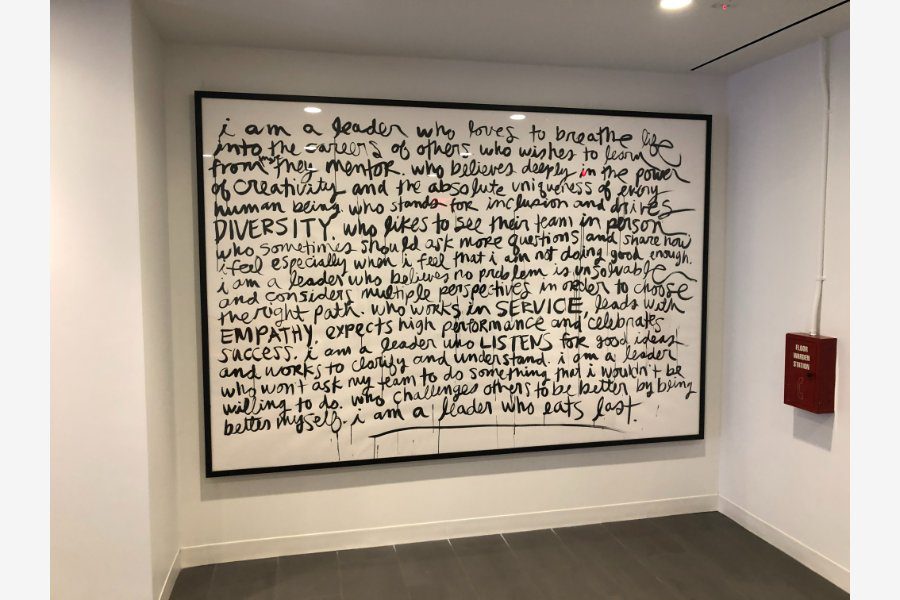 i am a leader who loves to breathe life
into the careers of others who wishes to learn
from they mentor. who believes deeply in the power
of creativity and the absolute uniqueness of every
human being. who stands for inclusion and drives
DIVERSITY. who likes to see their team in person
who sometimes should ask more questions and share how
i feel especially when i feel that i am not doing good enough.
i am a leader who believes no problem is unsolvable
and considers multiple perspectives in order to choose
the right path. who works in SERVICE, leads with
EMPATHY. expects high performance and celebrates
success. i am a leader who LISTENS for good ideas
and works to clarify and understand. i am a leader
who won't ask my team to do something that i wouldn't be
willing to do. who challenges others to be better by being
better myself. i am a leader who eats last.
FLOOR
WARDEN
STATION